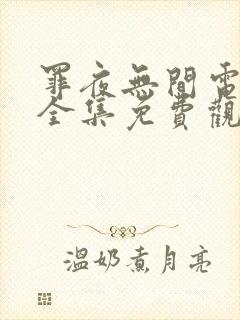 罪夜無間電
全集免費觀
溫奶煮月亮